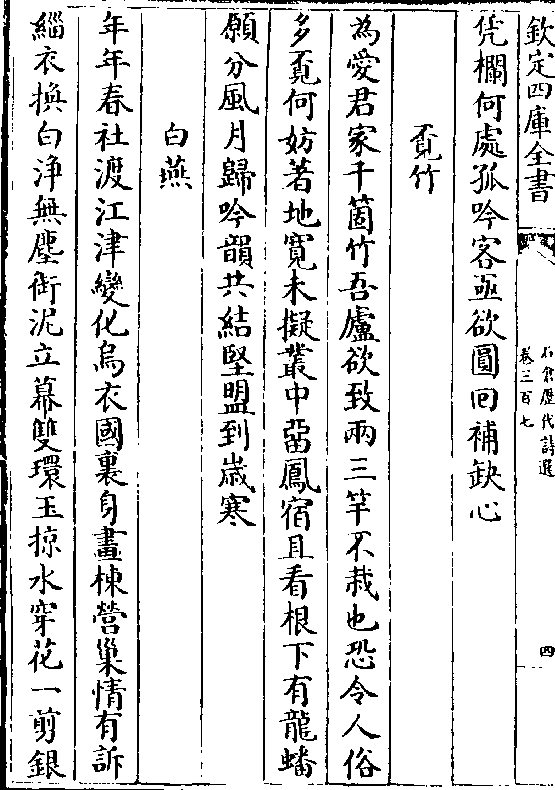 欽定四庫全書
石倉歷代詩選
卷三百七
四
凭欄何處孤吟客亟欲圓回補缺心
覔竹
為愛君家千箇竹吾廬欲致兩三竿不栽也恐令人俗
多覔何妨著地寛未擬叢中留鳳宿且看根下有龍蟠
願分風月歸吟韻共結堅盟到嵗寒
白燕
年年春社渡江津變化烏衣國裏身畫棟營巢情有訴
緇衣換白浄無塵銜泥立幕雙環玉掠水穿花一剪銀